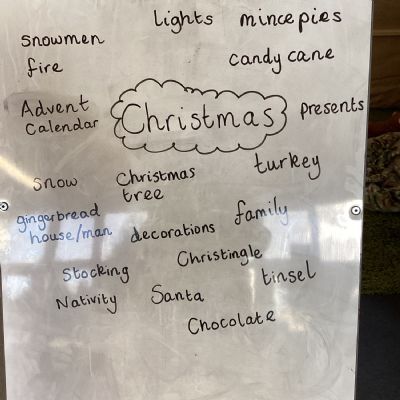 Lights
mince pies
snowmen
fire
candy cane
Advent
Calendar
Christmas
presents
turkey
snow
Christmas
tree
gingerbread
house/man
family
decorations
Christingle
Stocking
tinsel
Nativity
Santa
Chocolate